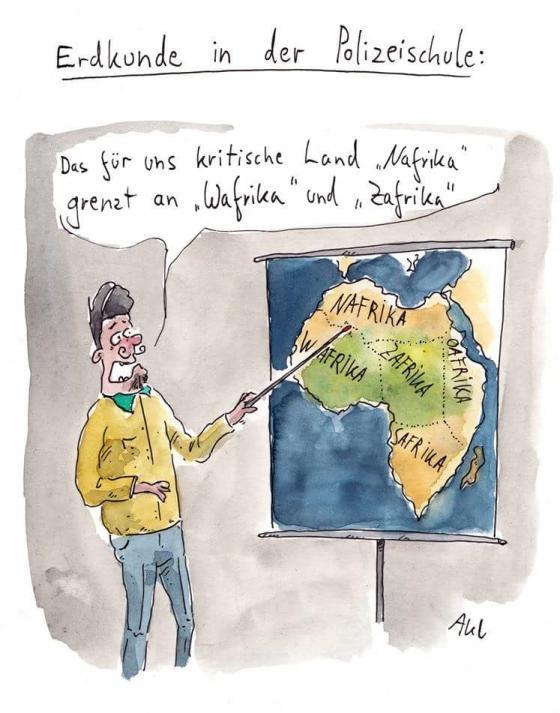 Erdkunde in der Polizeischule:
Das für uns kritische Land „Nafrika“
grenzt an „Wafrika“ und „Zafrika“
NAFRIKA
WAFRIKA
ZAFRIKA
OAFRIKA
SAFRIKA
AKL